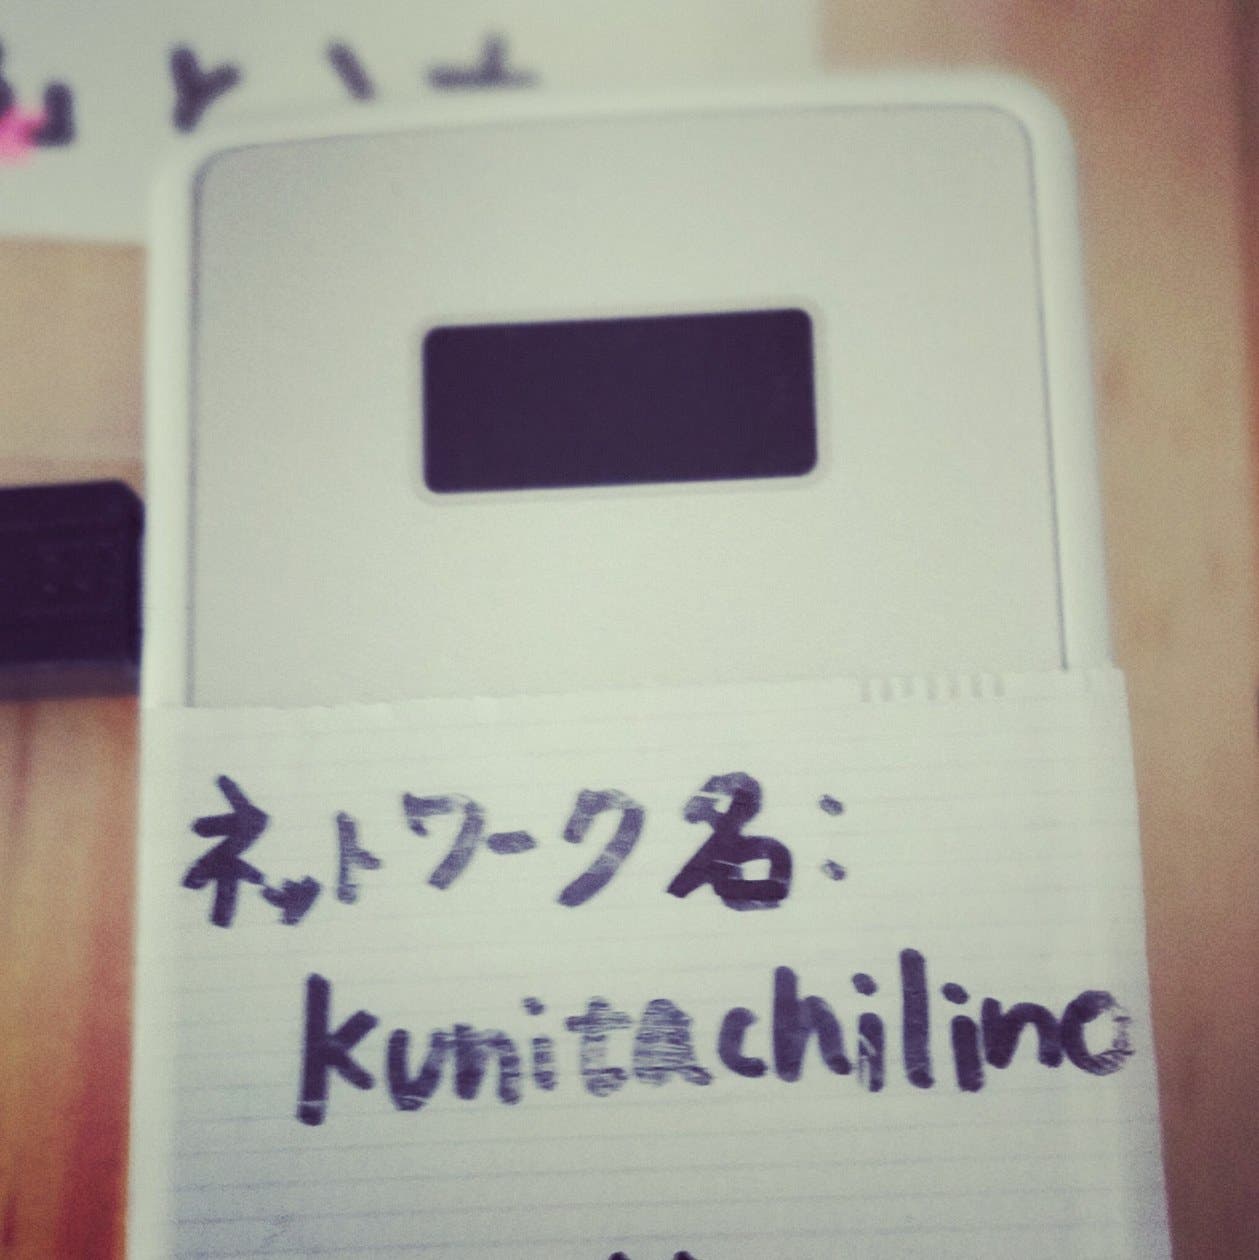 ネットワーク名:
kunitachilino